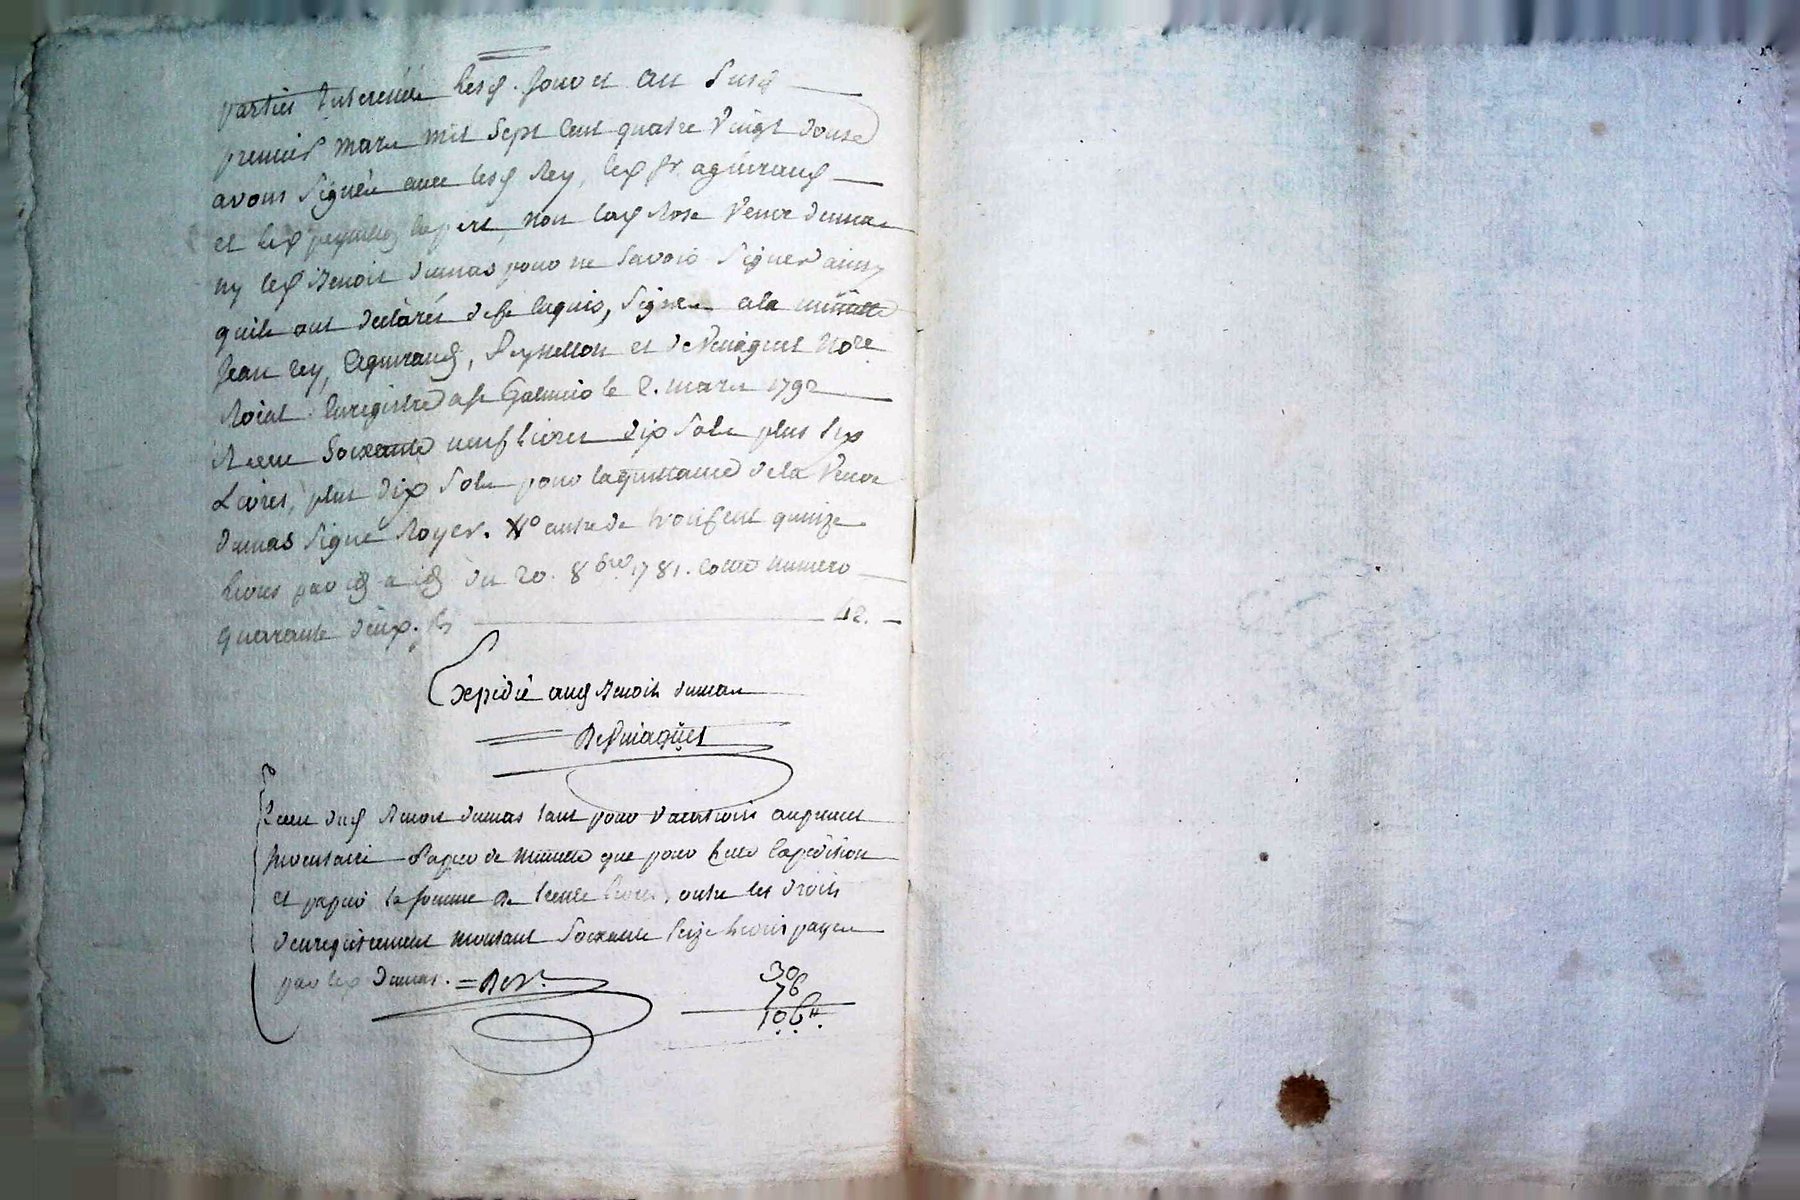 parties Interessées lesd. jour et an susd
premier mars mil sept cent quatre vingt douse
avons signés avec lesd Rey, led sr. aguiraud
et led expert, non lad Rose veuve dumas
ny led Benoit dumas pour ne savoir signer ainsy
quils ont declarés de ce enquis, signés a la minutte
Jean Rey, aguiraud, Peynellon et Nore
Roial. Enregistré a st Galmier le 2. mars 1792
Recu soixante neuf livres dix sols plus six
Livres, plus dix sols pour la quittance de la veuve
dumas signé Royer. No autre de trois cent quinze
livres par id a id du 20. 8bre 1781. cotté numero
quarante deux. 42.
Expedié aud Benoit dumas
Recu dud Benoit dumas tant pour vacations au present
Inventaire papier de minutte que pour cette Expedition
et papier la somme de trente livres, outre les droits
denregistrement montant soixante seize livres payés
par led dumas.
30
76
106#